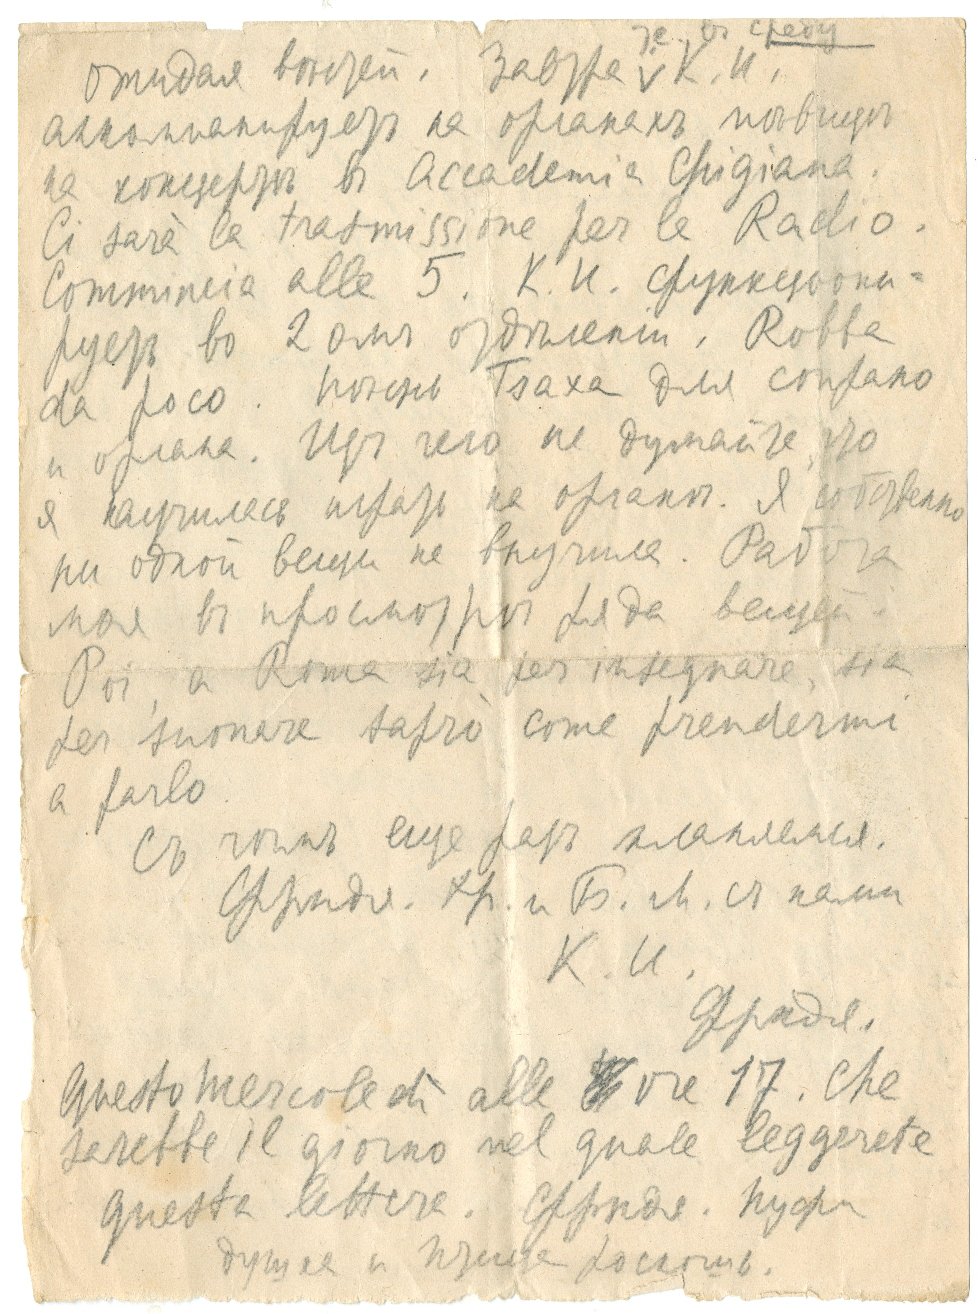 т.е. въ среду
ожидая вождей. Завтра V К. И.
аккомпанируетъ на органахъ пѣвицѣ
на концертѣ въ Accademia Chigiana.
Ci sarà la trasmissione per la Radio.
Commincia alle 5. К. И. функціони=
руетъ во 2омъ отдѣленіи. Robba
da poco. Баха для сопрано
и органа. не думайте, что
я научилась играть на органѣ. Я собственно
ни одной вещи не выучила. Работа
моя въ просмотрѣ ряда вещей.
Poi, a Roma sia per insegnare, sia
per suonare saprò come prendermi
a farlo.
Съ чѣмъ еще разъ кланяемся.
Фридя. Хр. и Б. М. съ нами
К. И.
Фридя.
Questo Mercoledì alle ore 17. Che
sarebbe il giorno nel quale leggerete
questa lettera. Фридя. Пуфи
душка и Пэща роскошь.